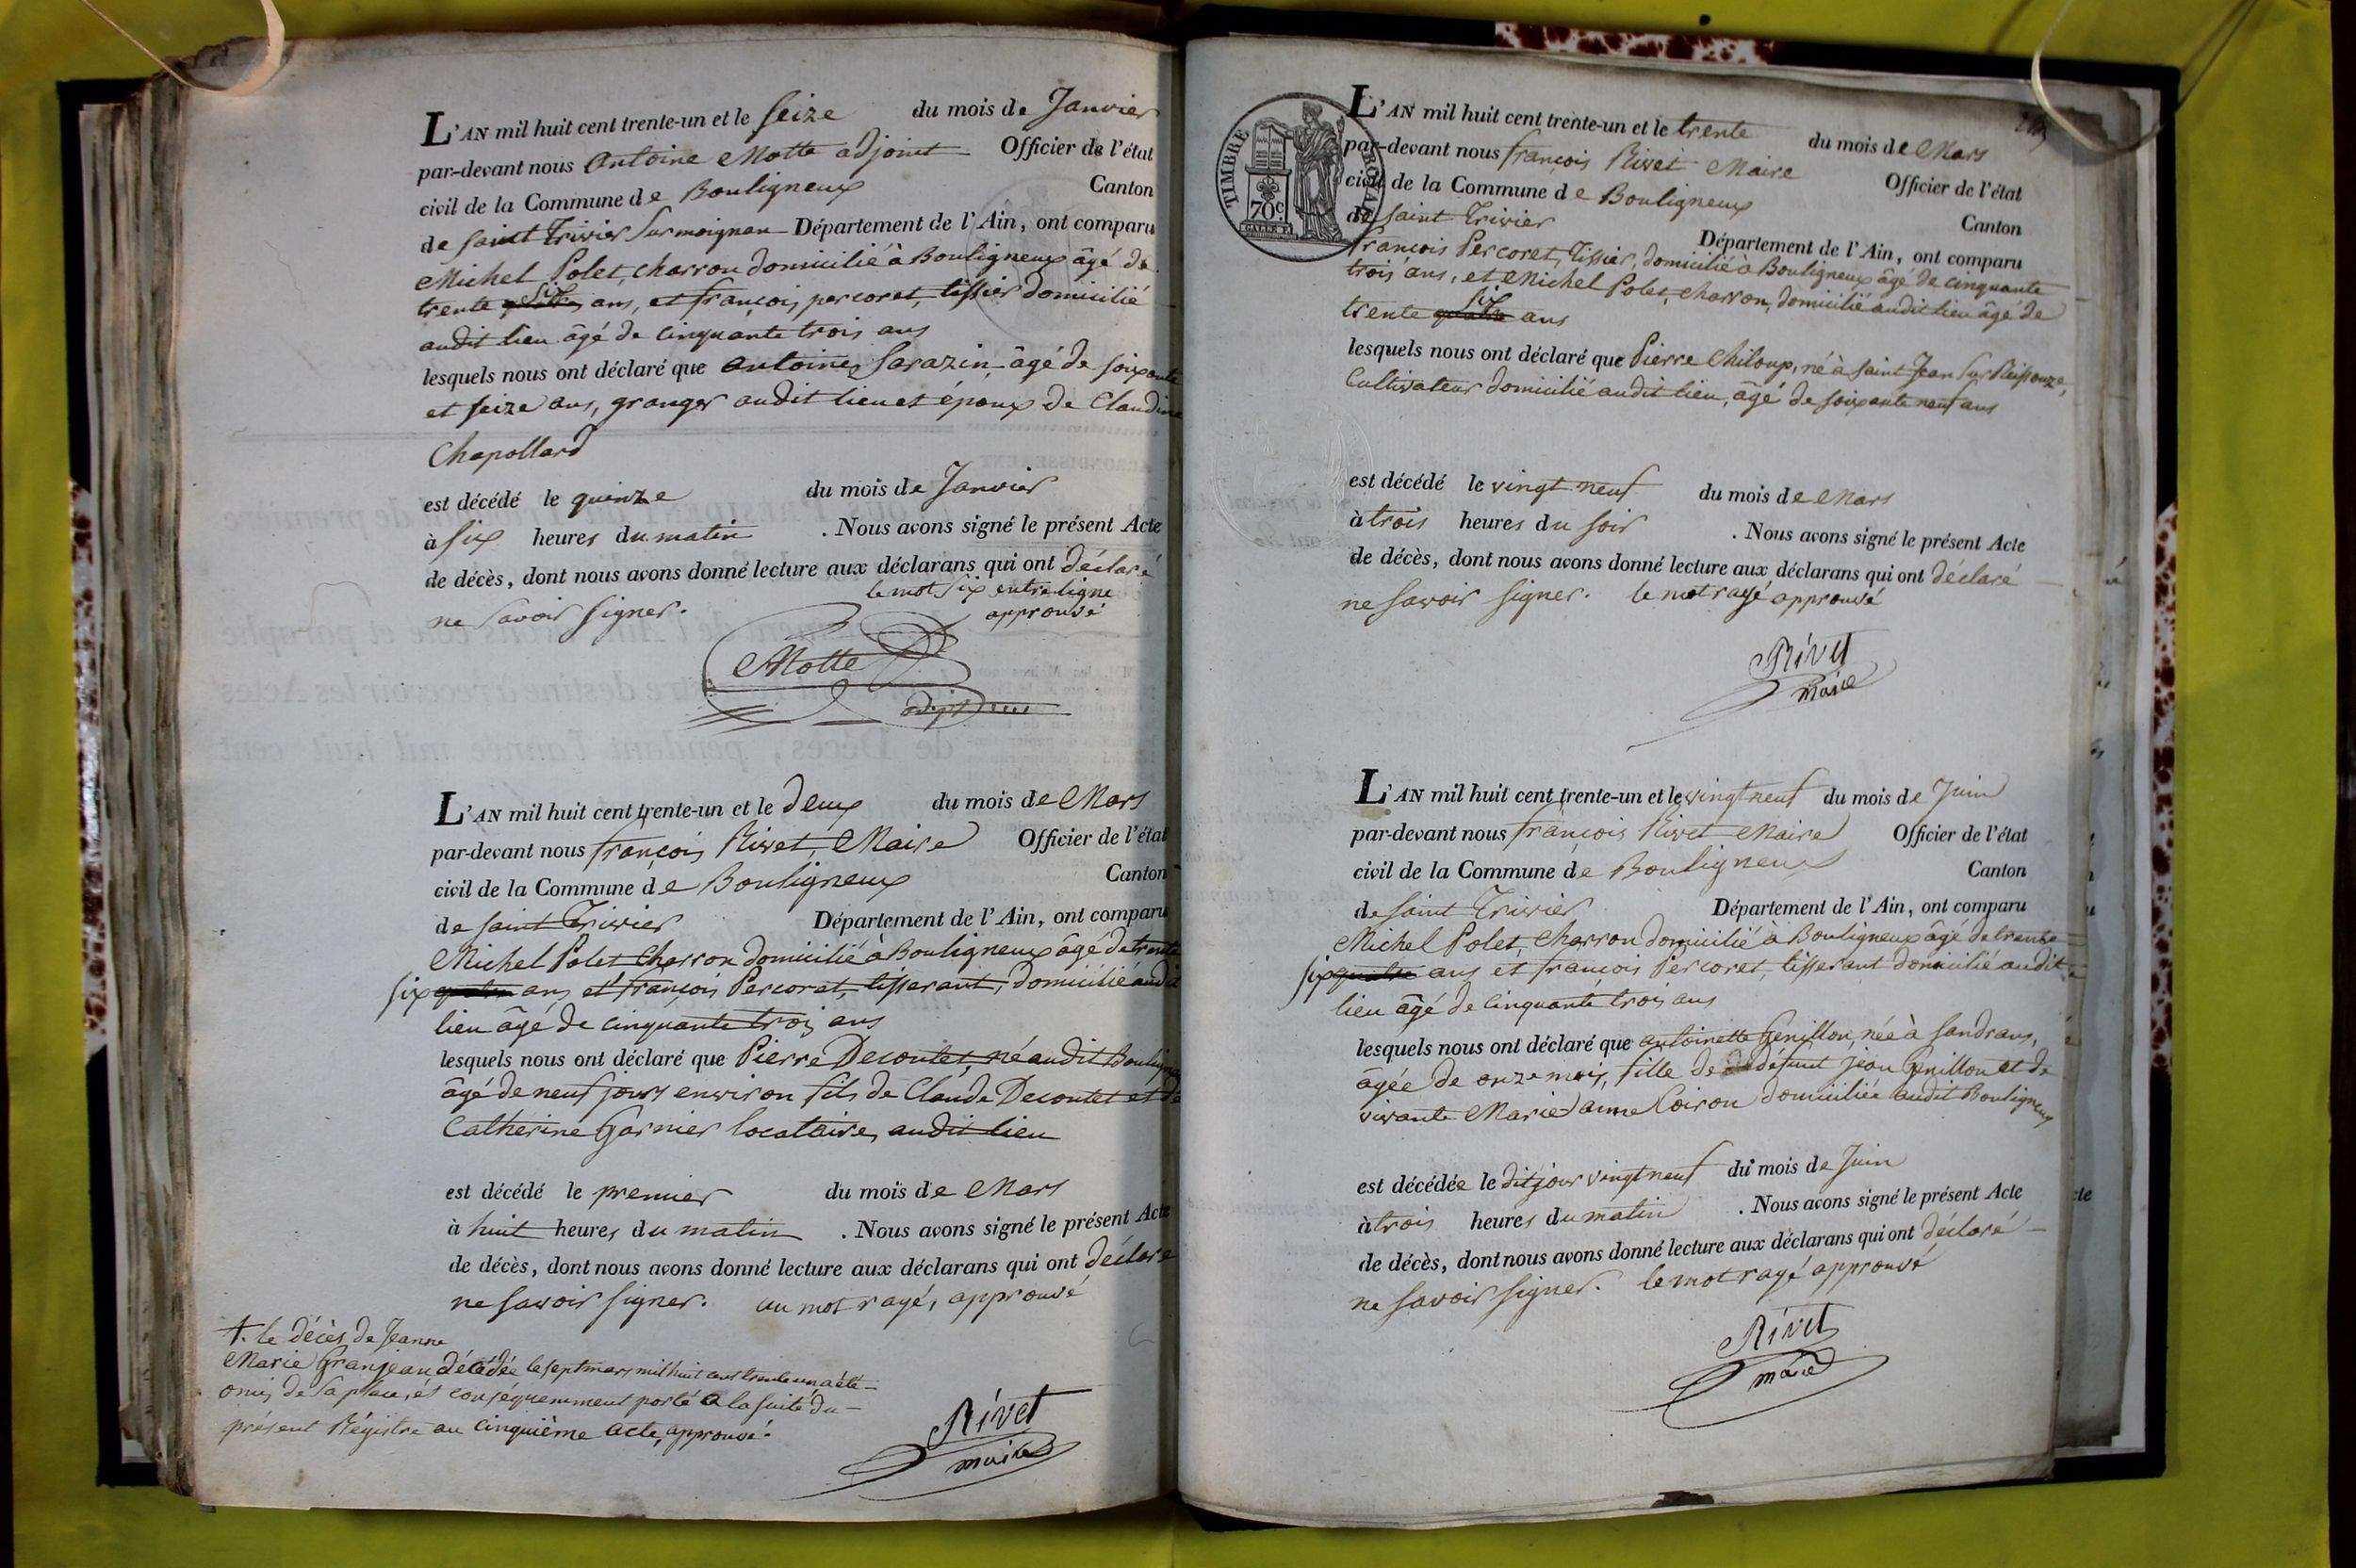 L'AN mil huit cent trente-un et le seize du mois de Janvier
par-devant nous Antoine Motte adjoint Officier de l'état
civil de la Commune de Bouligneux Canton
de saint Trivier sur moignan Département de l'Ain, ont comparu
Michel Polet, charron domicilié à Bouligneux âgé de
trente six ans, et françois percoret, tissier domicilié
audit lieu âgé de cinquante trois ans
lesquels nous ont déclaré que antoine Sarazin âgé de soixante
et seize ans, granger audit lieu et époux de Claudine
Chapollard
est décédé le quinze du mois de Janvier
à six heures du matin . Nous avons signé le présent Acte
de décès, dont nous avons donné lecture aux déclarans qui ont déclaré
ne savoir signer. le mot six entreligne
approuvé
Motte
adjoint
L'AN mil huit cent trente-un et le deux du mois de Mars
par-devant nous françois Rivet, Maire Officier de l'état
civil de la Commune de Bouligneux Canton
de saint Trivier Département de l'Ain, ont comparu
Michel Polet Charron domicilié à Bouligneux âgé de trente
six quatre ans et françois Percoret, tisserant, domicilié audit
lieu âgé de cinquante trois ans
lesquels nous ont déclaré que Pierre Decoutet, né audit Bouligneux
âgé de neuf jours environ fils de Claude Decoutet et de
Catherine Garnier locataires audit lieu
est décédé le premier du mois de Mars
à huit heures du matin . Nous avons signé le présent Acte
de décès, dont nous avons donné lecture aux déclarans qui ont déclaré
ne savoir signer. un mot rayé, approuvé
+. le décès de Jeanne
Marie Granjean décédée le sept mars mil huit cent trente un a été
omis de sa place, et conséquemment porté à la suite du
présent Régistre au cinquième acte, approuvé.
Rivet
maire
TIMBRE ROYAL
70c
L'AN mil huit cent trente-un et le trente du mois de Mars
par-devant nous françois Rivet Maire Officier de l'état
civil de la Commune de Bouligneux Canton
de saint Trivier Département de l'Ain, ont comparu
françois Percoret, tissier, domicilié à Bouligneux âgé de cinquante
trois ans, et Michel Polet, charron, domicilié audit lieu âgé de
trente quatre six ans
lesquels nous ont déclaré que Pierre Chiloup, né à saint Jean sur Reissouze,
Cultivateur domicilié audit lieu, âgé de soixante neuf ans
est décédé le vingt neuf du mois de Mars
à trois heures du soir . Nous avons signé le présent Acte
de décès, dont nous avons donné lecture aux déclarans qui ont déclaré
ne savoir signer. le mot rayé approuvé
Rivet
maire
L'AN mil huit cent trente-un et le vingt neuf du mois de Juin
par-devant nous françois Rivet Maire Officier de l'état
civil de la Commune de Bouligneux Canton
de saint Trivier Département de l'Ain, ont comparu
Michel Polet, Charron domicilié à Bouligneux âgé de trente
six quatre ans et françois Percoret, tisserant domicilié audit
lieu âgé de cinquante trois ans
lesquels nous ont déclaré que antoinette Genillon, née à Sandrans,
âgée de onze mois, fille de défunt jean Genillon et de
vivante Marie Janne Coiron domiciliée audit Bouligneux
est décédée le dit jour vingt neuf du mois de Juin
à trois heures du matin . Nous avons signé le présent Acte
de décès, dont nous avons donné lecture aux déclarans qui ont déclaré
ne savoir signer. le mot rayé approuvé
Rivet
maire